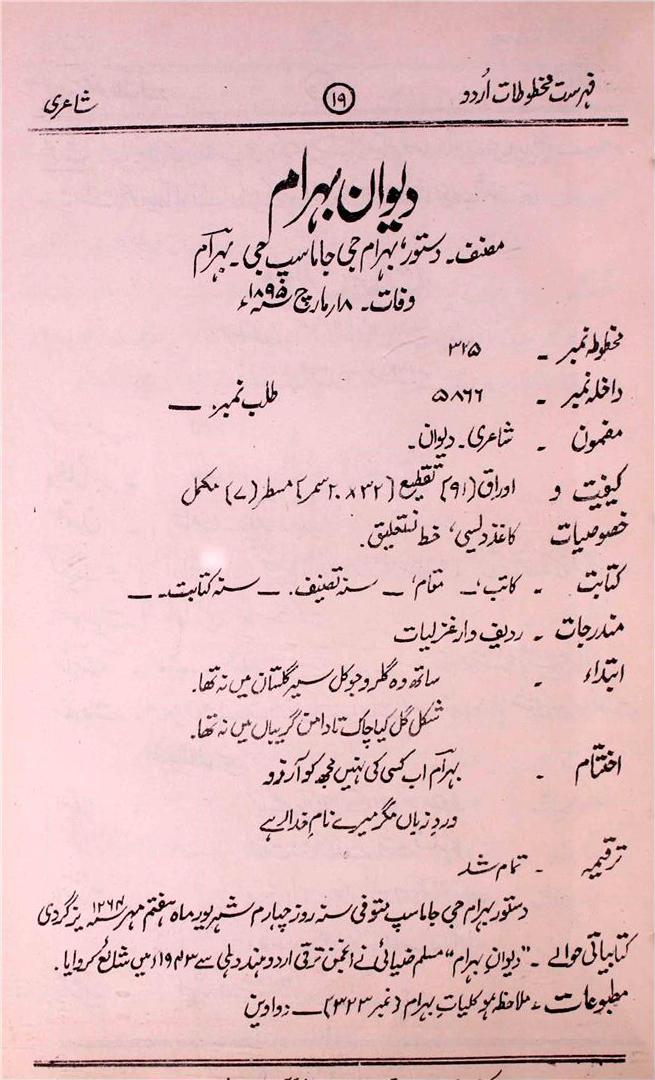 فہرست مخطوطات اُردو ۱۹ شاعری
دیوان بہرام
مصنف۔ دستور، بہرام جی جاماسپ جی۔ بہرام
وفات۔ ۱۸؍ مارچ ۱۸۹۵ء
مخطوطہ نمبر ۔ ۳۲۵
داخلہ نمبر ۔ ۵۸۶۶ طلب نمبر۔ —
مضمون ۔ شاعری۔ دیوان۔
کیفیت و اوراق (۹۱) تقطیع (۳۲ × ۲۰ سمر) مسطر (۷) مکمل
خصوصیات کاغذ دیسی، خط نستعلیق۔
کتابت ۔ کاتب،۔ مقام، — سنہ تصنیف۔ — سنہ کتابت۔ —
مندرجات ۔ ردیف وار غزلیات
ابتداء ۔ ساتھ وہ گلرو جو کل سیر گلستان میں نہ تھا۔
شکل گل کیا چاک تا دامن گریباں میں نہ تھا۔
اختتام ۔ بہرام اب کسی کی نہیں مجھ کو آرزو
ورد زباں مگر میرے نام خدا رہے
ترقیمہ ۔ تمام شد
دستور بہرام جی جاماسپ متوفی سنہ روز چہارم شہریور ماہ ہفتم مہر سنہ ۱۲۶۴ یزگردی
کتابیاتی حوالے ۔ "دیوانِ بہرام" مسلم ضیائی نے انجمن ترقی اردو ہند دہلی سے ۱۹۴۳ء میں شائع کروایا۔
مطبوعات ۔ ملاحظہ ہو کلیات بہرام (نمبر ۳۲۳) — دواوین